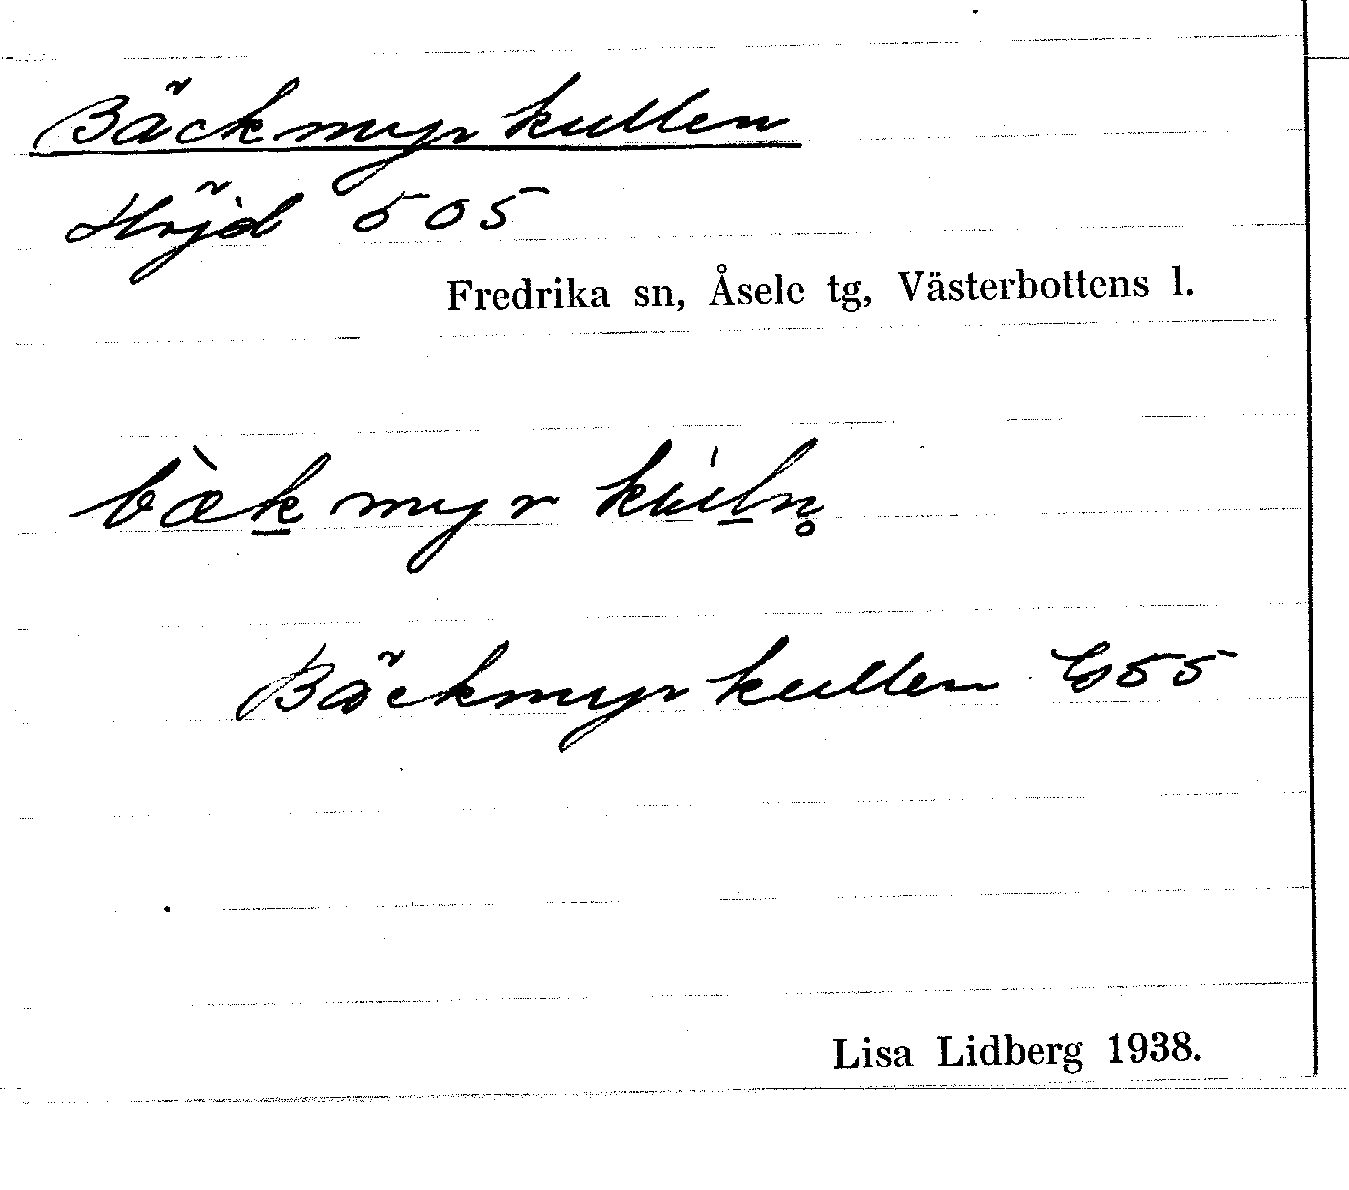 Bäckmyrkullen
Höjd 505
Fredrika sn, Åsele tg, Västerbottens l.
bæ̀k̲myrkúl̲n̥
Bäckmyrkullen G55
Lisa Lidberg 1938.